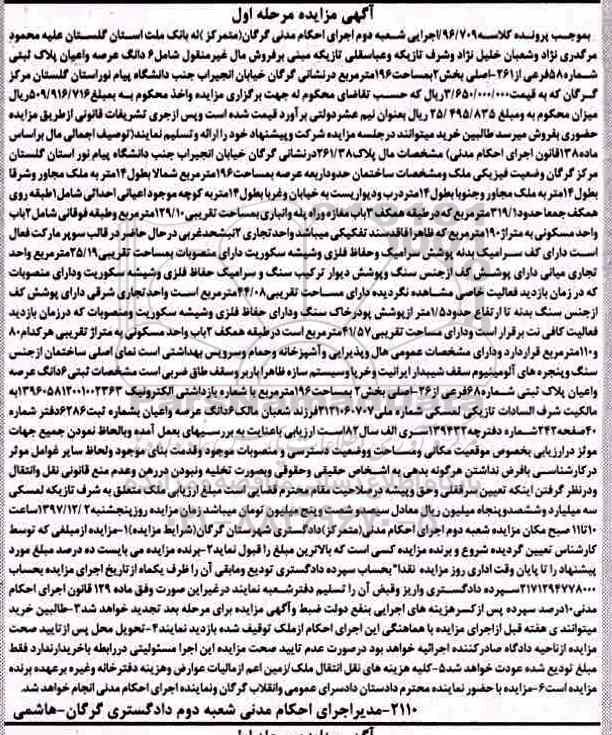 آگهی مزایده مرحله اول
بموجب پرونده کلاسه ۹۶/۷۰۹/اجرایی شعبه دوم اجرای احکام مدنی گرگان(متمرکز )له بانک ملت استان گلستان علیه محمود
مرگدری نژاد وشعبان خلیل نژاد وشرف تازیکه وعباسقلی تازیکه مبنی برفروش مال غیرمنقول شامل۶ دانگ عرصه واعیان پلاک ثبتی
شماره۵۸فرعی از۲۶۱-اصلی بخش۲بمساحت۱۹۶مترمربع درنشانی گرگان خیابان انجیراب جنب دانشگاه پیام نوراستان گلستان مرکز
گرگان که به قیمت۳/۶۵۰/۰۰۰/۰۰۰ریال که حسب تقاضای محکوم له جهت برگزاری مزایده واخذ محکوم به بمبلغ۵۰۹/۹۱۶/۷۱۶ریال
میزان محکوم به ومبلغ ۲۵/۴۹۵/۸۳۵ ریال بعنوان نیم عشردولتی برآورد قیمت شده است وپس ازجری تشریفات قانونی ازطریق مزایده
حضوری بفروش میرسد طالبین خرید میتوانند درجلسه مزایده شرکت وپیشنهاد خود را ارائه وتسلیم نمایند(توصیف اجمالی مال براساس
ماده۱۳۸قانون اجرای احکام مدنی) مشخصات مال پلاک۲۶۱/۳۸درنشانی گرگان خیابان انجیراب جنب دانشگاه پیام نور استان گلستان
مرکز گرگان وضعیت فیزیکی ملک ومشخصات ساختمان حدواربعه عرصه بمساحت۱۹۶مترمربع شمالا بطول۱۴متر به ملک مجاور وشرقا
بطول۱۴متر به ملک مجاور وجنوبا بطول۱۴متردرب ودیواریست به خیابان وغربا بطول۱۴متربه کوچه موجود اعیانی احداثی شامل۱طبقه روی
همکف جمعا حدود۳۱۹/۱مترمربع که درطبقه همکف۳باب مغازه وراه پله وانباری بمساحت تقریبی۱۲۹/۱۰مترمربع وطبقه فوقانی شامل۲باب
واحد مسکونی به متراژ۱۹۰مترمربع که ظاهرا فاقدسند تفکیکی میباشد واحد تجاری۲نبشحدغربی درحال حاضر در قالب سوپر مارکت فعال
است دارای کف سرامیک بدنه پوشش سرامیک وحفاظ فلزی وشیشه سکوریت دارای منصوبات بمساحت تقریبی۲۵/۱۹مترمربع واحد
تجاری میانی دارای پوشش کف ازجنس سنگ وپوشش دیوار ترکیب سنگ و سرامیک حفاظ فلزی وشیشه سکوریت ودارای منصوبات
که در زمان بازدید فعالیت خاصی مشاهده نگردیده دارای مساحت تقریبی۴۴/۰۸مترمربع است واحد تجاری شرقی دارای پوشش کف
ازجنس سنگ بدنه تا ارتفاع حدود۱/۵متر ازپوشش پودرخاک سنگ ودارای حفاظ فلزی وشیشه سکوریت ومنصوبات که درزمان بازدید
فعالیت کافی نت برقرار است ودارای مساحت تقریبی۴۱/۵۷مترمربع است درطبقه همکف ۲باب واحد مسکونی به متراژ تقریبی هرکدام۸۰
و۱۱۰مترمربع قراردارد ودارای مشخصات عمومی هال وپذیرایی وآشپزخانه وحمام وسرویس بهداشتی است نمای اصلی ساختمان ازجنس
سنگ وپنجره های آلومینیوم سقف شیبدار ایرانیت وخرپا وسیستم سازه ظاهرا باربر وسقف طاق ضربی است مشخصات ثبتی۶دانگ عرصه
واعیان پلاک ثبتی شماره۶۸فرعی از۲۶-اصلی بخش۲ بمساحت۱۹۶مترمربع با شماره بازداشتی الکترونیک ۱۳۹۶۰۵۸۱۲۰۰۱۰۰۲۳۶۳به
مالکیت شرف السادات تازیکی لمسکی شماره ملی۲۱۲۱۰۶۰۷۰۷فرزند شعبان مالک۶دانگ عرصه واعیان بشماره ثبت۶۲۸۶دفتر شماره
۴۰صفحه۲۴۲شماره دفترچه۱۳۹۴۳۲سری الف سال۸۲است ارزیابی باعنایت به بررسیهای بعمل آمده وبالحاظ نمودن جمیع جهات
موثر درارزیابی بخصوص موقعیت مکانی ومساحت ووضعیت دسترسی و منصوبات موجود وقدمت بنای موجود ولحاظ سایر عوامل موثر
درکارشناسی بافرض نداشتن هرگونه بدهی به اشخاص حقیقی وحقوقی وبصورت تخلیه ونبودن دررهن وعدم منع قانونی نقل وانتقال
ودرنظر گرفتن اینکه تعیین سرقفلی وحق وپیشه درصلاحیت مقام محترم قضایی است مبلغ ارزیابی ملک متعلق به شرف تازیکه لمسکی
سه میلیارد وششصدوپنجاه میلیون ریال معادل سیصدو شصت وپنج میلیون تومان میباشد زمان مزایده روزپنجشنبه ۱۳۹۷/۱۲/۲ساعت
۱۰تا۱۱ صبح مکان مزایده شعبه دوم اجرای احکام مدنی(متمرکز)دادگستری شهرستان گرگان(شرایط مزایده)۱-مزایده ازمبلغی که توسط
کارشناس تعیین گردیده شروع و برنده مزایده کسی است که بالاترین مبلغ را قبول نماید۲-برنده مزایده می بایست ده درصد مبلغ مورد
پیشنهاد را تا پایان وقت اداری روز مزایده نقدا"بحساب سپرده دادگستری تودیع ومابقی آن را ظرف یکماه از تاریخ اجرای مزایده بحساب
۲۱۷۱۲۹۴۷۷۸۰۰۰سپرده دادگستری واریز وقبض آن را تسلیم دفترشعبه نمایند درغیراین صورت وفق ماده ۱۲۹ قانون اجرای احکام
مدنی۱۰درصد سپرده پس ازکسرهزینه های اجرایی بنفع دولت ضبط وآگهی مزایده برای مرحله بعد تجدید خواهد شد۳-طالبین خرید
میتوانند ی هفته قبل ازاجرای مزایده با هماهنگی این اجرای احکام ازملک توقیف شده بازدید نمایند۴-تحویل محل پس ازتایید صحت
مزایده ازناحیه دادگاه صادرکننده اجرائیه خواهد بود درصورت عدم تایید صحت مزایده این اجرا مسئولیتی دررابطه باخریدارندارد فقط
مبلغ تودیع شده عودت خواهد شد۵-کلیه هزینه های نقل انتقال ملک/زمین اعم ازمالیات عوارض وهزینه دفترخانه وغیره برعهده برنده
مزایده است۶-مزایده با حضور نماینده محترم دادستان دادسرای عمومی وانقلاب گرگان ونماینده اجرای احکام مدنی انجام خواهد شد.
۲۱۱۰-مدیراجرای احکام مدنی شعبه دوم دادگستری گرگان-هاشمی